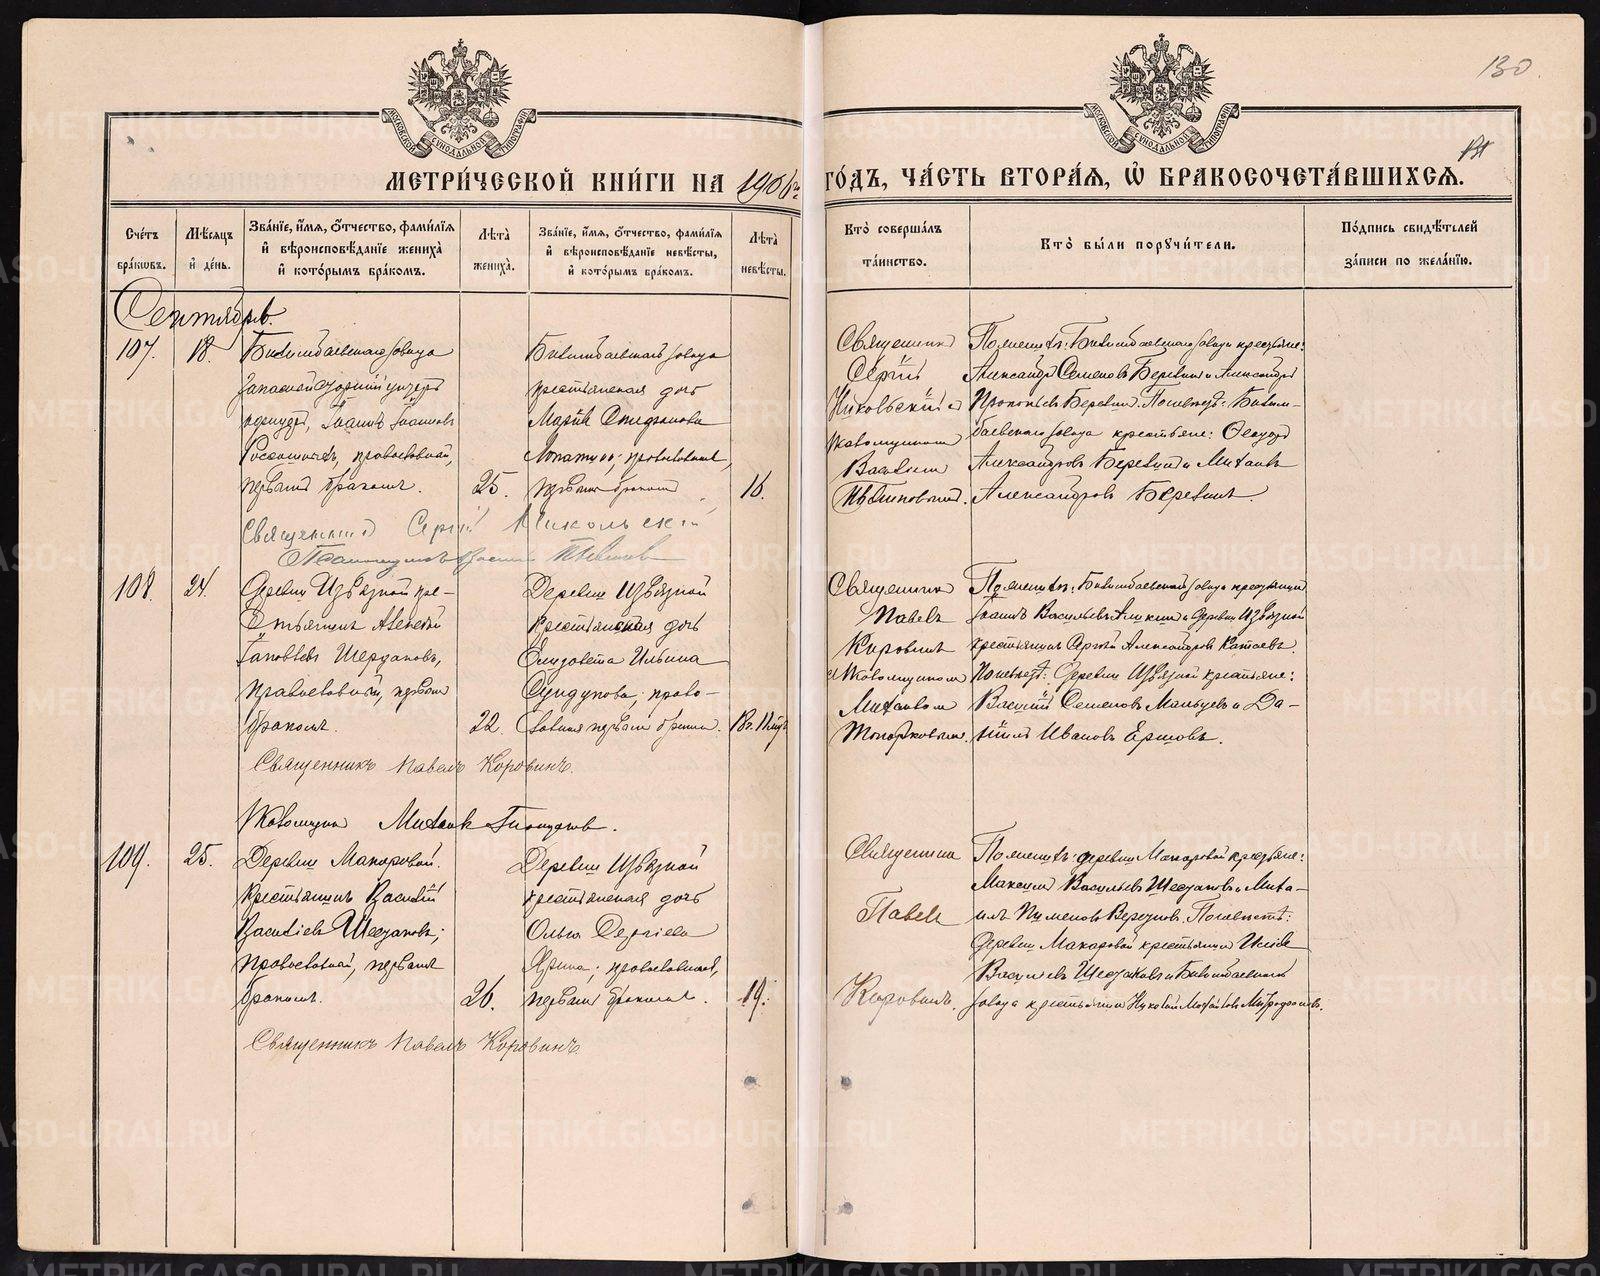 130
МЕТРИ́ЧЕСКОЙ КНИ́ГИ НА 1906 ГО́ДЪ, ЧА́СТЬ ВТОРА́Я, Ѡ БРАКОСОЧЕТА́ВШИХСЯ.
МОСКОВСКОЙ СѴНОДАЛЬНОЙ ТИПОГРАФІИ
МОСКОВСКОЙ СѴНОДАЛЬНОЙ ТИПОГРАФІИ
Сче́тъ бра́ковъ.
Мѣ́сяцъ и҆ де́нь.
Зва́нїе, и҆́мя, ѻ҆́тчество, фами́лїя и҆ вѣроисповѣ́данїе жениха̀ и҆ кото́рымъ бра́комъ.
Лѣ́та жениха̀.
Зва́нїе, и҆́мя, ѻ҆́тчество, фами́лїя и҆ вѣроисповѣ́данїе невѣ́сты, и҆ кото́рымъ бра́комъ.
Лѣ́та невѣ́сты.
Кто̀ соверша́лъ та́инство.
Кто̀ бы́ли порꙋчи́тели.
По́дпись свидѣ́телей за́писи по жела́нїю.
Сентябрь.
107. 18
Билимбаевскаго завода
запасной
Іоаннъ Іоанновъ
православный,
первымъ бракомъ.
25.
Билимбаевскаго завода
крестьянская дочь
Марія
Лопатина; православная,
первымъ бракомъ
16.
Священникъ
Сергій
Никольскій с
псаломщикомъ
Василіемъ
По женихѣ: Билимбаевскаго завода крестьяне:
Александръ Семеновъ Беревинъ и Александръ
Прокопьевъ Беревинъ. По невѣстѣ: Билим-
баевскаго завода крестьяне: Ѳеодоръ
Александровъ Беревинъ и Михаилъ
Александровъ Беревинъ.
Священникъ Сергій Никольскій
Псаломщикъ Василій
108. 24.
Деревни Извѣзной кре-
стьянинъ Алексѣй
Іаковлевъ
православный, первымъ
бракомъ.
22.
Деревни Извѣзной
крестьянская дочь
Елизавета Ильина
Сундукова; право-
славная первымъ бракомъ.
Священникъ
Павелъ
Коровинъ
съ псаломщикомъ
Михаиломъ
По женихѣ: Билимбаевскаго завода крестьянинъ
Іоаннъ Васильевъ Аликинъ и деревни Извѣзной
крестьянинъ Сергѣй Александровъ Катаевъ.
По невѣстѣ: деревни Извѣзной крестьяне:
Василій Семеновъ Мальцевъ и Да-
ніилъ Ивановъ Ершовъ.
Священникъ Павелъ Коровинъ.
Псаломщикъ Михаилъ
109. 25.
Деревни Макаровой
крестьянинъ Василій
Васильевъ Шестаковъ;
православный, первымъ
бракомъ.
26.
Деревни Извѣзной
крестьянская дочь
Ольга Сергіева
Ярина; православная,
первымъ бракомъ.
19.
Священникъ
Павелъ
Коровинъ.
По женихѣ: деревни Макаровой крестьяне:
Максимъ Васильевъ Шестаковъ и Миха-
илъ Пименовъ По невѣстѣ:
деревни Макаровой крестьянинъ
Васильевъ Шестаковъ и Билимбаевскаго
завода крестьянинъ Николай Михайловъ Митрофановъ.
Священникъ Павелъ Коровинъ.
METRIKI.GASO-URAL.RU